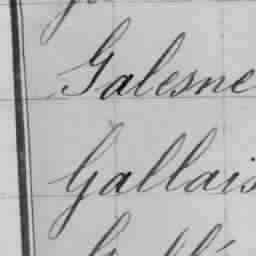 Galesne
Gallais